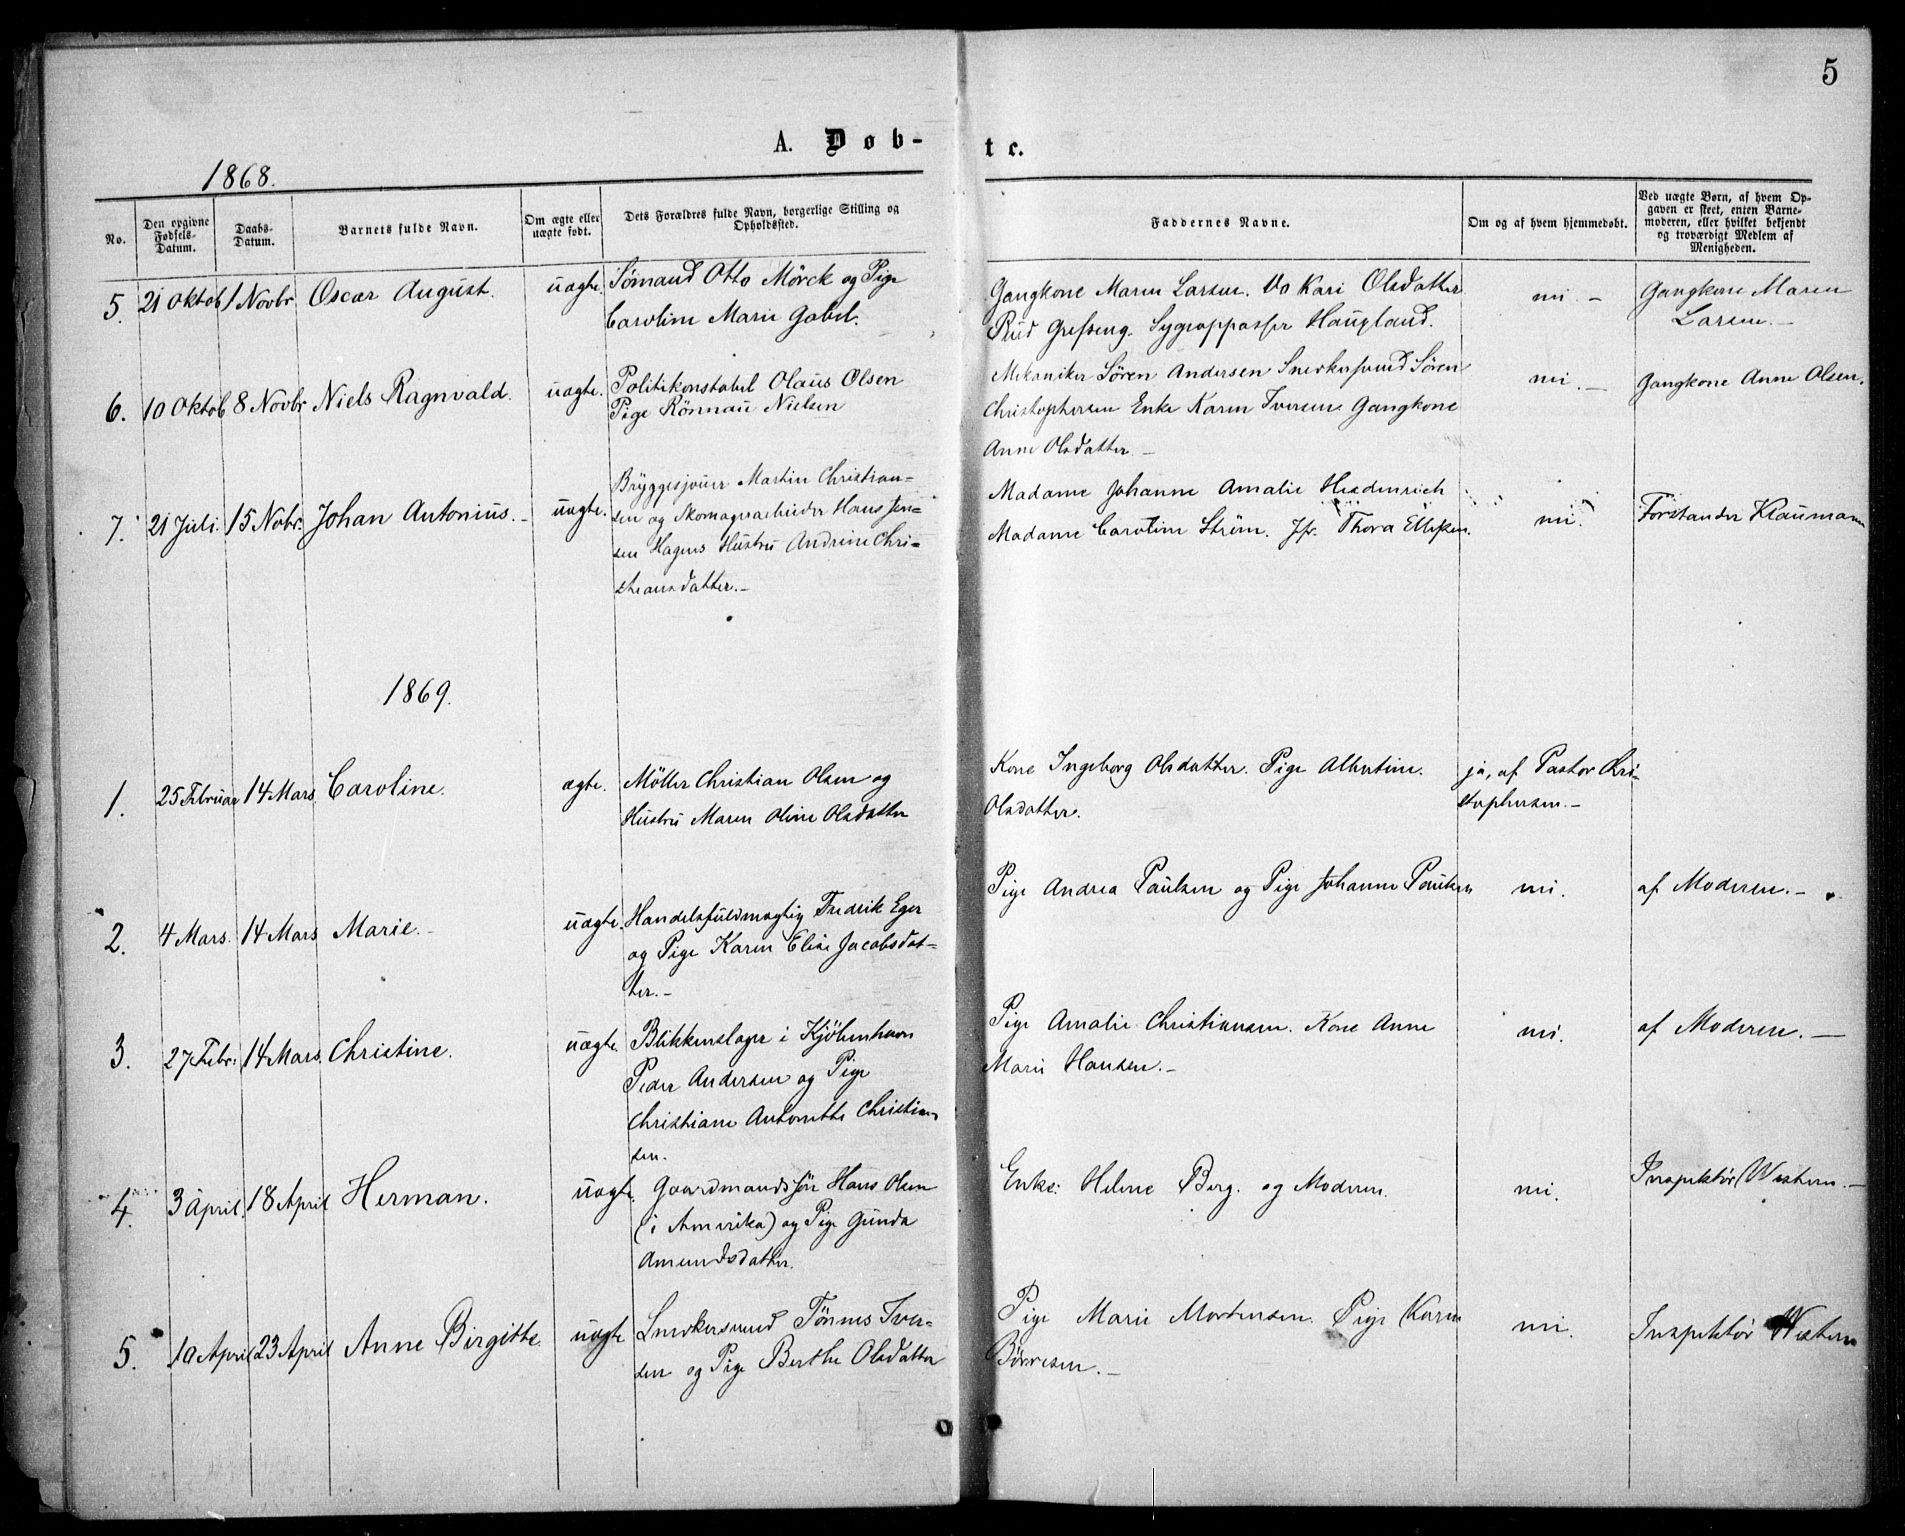 5
A. Døb-
te.
1868.
No.
Den opgivne Fødsels-Datum.
Daabs-Datum.
Barnets fulde Navn.
Om ægte eller uægte født.
Dets Forældres fulde Navn, borgerlige Stilling og Opholdssted.
Faddernes Navne.
Om og af hvem hjemmedøbt.
Ved uægte Børn, af hvem Opgaven er skeet, enten Barnemoderen, eller hvilket bekjendt og troværdigt Medlem af Menigheden.
5. 21 Oktob 1 Novbr Oscar August. uægte. Sømand Otto Mörck og Pige
Caroline Marie Gabel.
Gangkone Maren Larsen. Do Kari Olsdatter
Rud Grefseng. Sygeopasser Haugland.
nei. –
Gangkone Maren
Larsen. –
6. 10 Oktob 8 Novbr Niels Ragnvald. uægte. Politikonstabel Olaus Olsen
Pige Rönnau Nielsen
Mekaniker Sören Andersen Snedkersvend Sören
Christophersen Enke Karen Iversen Gangkone
Anne Olsdatter. –
nei. –
Gangkone Anne Olsen.
7. 21 Juli. 15 Nobr. Johan Antonius. – uægte. Bryggesjouer Martin Christian=
sen og Skomagerarbeider Hans Jen=
sen Hagens Hustru Andrine Chri=
stiansdatter. –
Madame Johanne Amalie Heidenreich
Madame Caroline Strøm. Jfr. Thora Ellefsen.
nei.
Forstander Klaumann
1869.
1. 25 Februar 14 Mars. Caroline. ægte. Möller Christian Olsen og
Hustru Maren Oline Olsdatter
Kone Ingeborg Olsdatter. Pige Albertine.
Olsdatter.
ja, af Pastor Chri-
stophersen. –
2. 4 Mars. 14 Mars Marie. – uægte. Handelsfuldmægtig Fredrik Eger
og Pige Karen Elise Jacobsdat=
ter. –
Pige Andrea Paulsen og Pige Johanne Paulsen
nei.
af Moderen. –
3. 27 Febr: 14 Mars. Christine. uægte. Blikkenslager i Kjöbenhavn
Peder Andersen og Pige
Christiane Antonette Christian
sen.
Pige Amalie Christiansen. Kone Anne
Marie Hansen. –
nei.
af Moderen. –
4. 3 April. 18 April Herman. uægte. Gaardmandssön Hans Olsen
(i Amerika) og Pige Gunda
Amundsdatter.
Enke: Helene Berg. og Moderen.
nei.
Inspektør Western. –
5. 10 April 23 April Anne Birgitte. uægte Snedkersvend Tønnes Iver=
sen og Pige Berthe Olsdatter
Pige Marie Mortensen. Pige Karen
Börresen. –
nei.
Inspektør Western